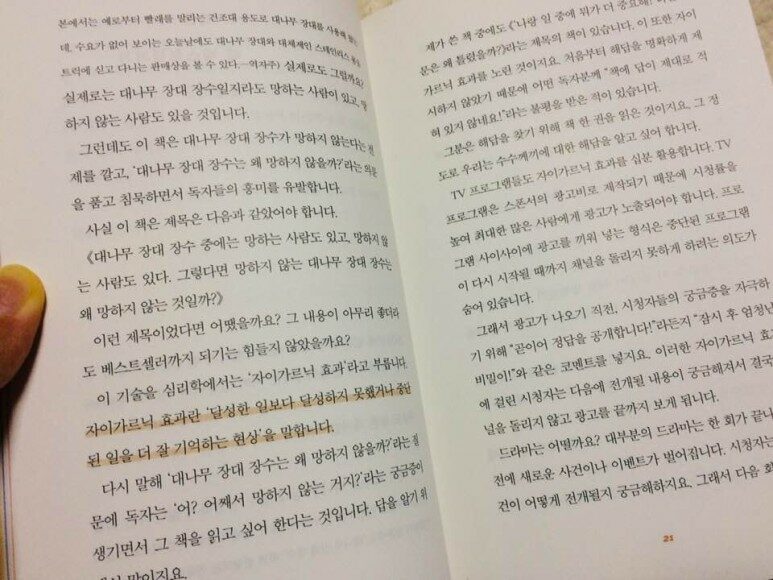 본에서는 예로부터 빨래를 말리는 건조대 용도로 대나무 장대를 사용해
데, 수요가 없어 보이는 오늘날에도 대나무 장대와 대체재인 스테인리스 봉을
트럭에 싣고 다니는 판매상을 볼 수 있다.―역자주) 실제로도 그럴까요?
실제로는 대나무 장대 장수일지라도 망하는 사람이 있고, 망
하지 않는 사람도 있을 것입니다.
그런데도 이 책은 대나무 장대 장수가 망하지 않는다는 전
제를 깔고, '대나무 장대 장수는 왜 망하지 않을까?'라는 의문
을 품고 침묵하면서 독자들의 흥미를 유발합니다.
사실 이 책은 제목은 다음과 같았어야 합니다.
《대나무 장대 장수 중에는 망하는 사람도 있고, 망하지 않
는 사람도 있다. 그렇다면 망하지 않는 대나무 장대 장수는
왜 망하지 않는 것일까?》
이런 제목이었다면 어땠을까요? 그 내용이 아무리 좋더라
도 베스트셀러까지 되기는 힘들지 않았을까요?
이 기술을 심리학에서는 '자이가르닉 효과'라고 부릅니다.
자이가르닉 효과란 '달성한 일보다 달성하지 못했거나 중단
된 일을 더 잘 기억하는 현상'을 말합니다.
다시 말해 '대나무 장대 장수는 왜 망하지 않을까?'라는 질
문에 독자는 '어? 어째서 망하지 않는 거지?'라는 궁금증이
생기면서 그 책을 읽고 싶어 한다는 것입니다. 답을 알기 위
해서 말이지요.
제가 쓴 책 중에도 《'나랑 일 중에 뭐가 더 중요해?'
문은 왜 틀렸을까?》라는 제목의 책이 있습니다. 이 또한 자이
가르닉 효과를 노린 것이지요. 처음부터 해답을 명확하게 제
시하지 않았기 때문에 어떤 독자분께 "책에 답이 제대로 적
혀 있지 않네요!"라는 불평을 받은 적이 있습니다.
그분은 해답을 찾기 위해 책 한 권을 읽은 것이지요. 그 정
도로 우리는 수수께끼에 대한 해답을 알고 싶어 합니다.
TV 프로그램들도 자이가르닉 효과를 십분 활용합니다. TV
프로그램은 스폰서의 광고비로 제작되기 때문에 시청률을
높여 최대한 많은 사람에게 광고가 노출되어야 합니다. 프로
그램 사이사이에 광고를 끼워 넣는 형식은 중단된 프로그램
이 다시 시작될 때까지 채널을 돌리지 못하게 하려는 의도가
숨어 있습니다.
그래서 광고가 나오기 직전, 시청자들의 궁금증을 자극하
기 위해 "곧이어 정답을 공개합니다!"라든지 "잠시 후 엄청난
비밀이!"와 같은 코멘트를 넣지요. 이러한 자이가르닉 효과
에 걸린 시청자는 다음에 전개될 내용이 궁금해져서 결국
널을 돌리지 않고 광고를 끝까지 보게 됩니다.
드라마는 어떨까요? 대부분의 드라마는 한 회가 끝나
전에 새로운 사건이나 이벤트가 벌어집니다. 시청자는
건이 어떻게 전개될지 궁금해하지요. 그래서 다음 회
21